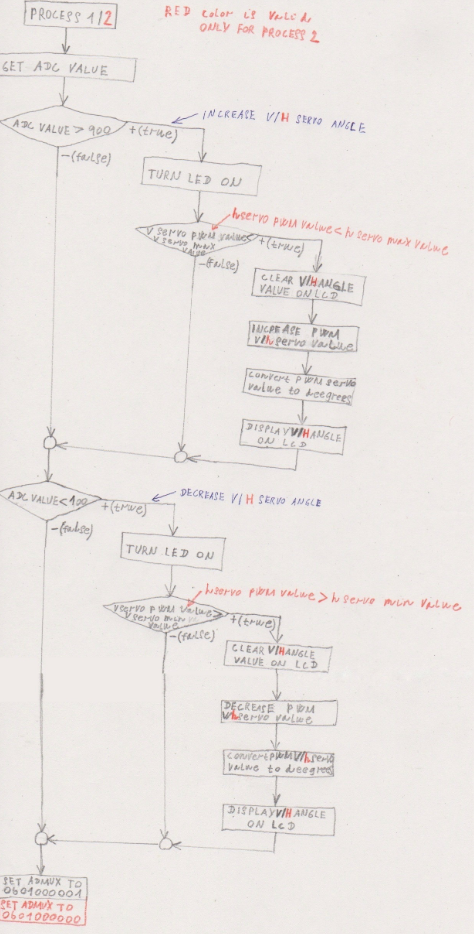 PROCESS 1/2
RED color is valid
ONLY FOR PROCESS 2
GET ADC VALUE
ADC VALUE > 900
+(true)
INCREASE V/H SERVO ANGLE
-(false)
TURN LED ON
h servo PWM value < h servo max value
V servo PWM value <
V servo max
value
+(true)
-(false)
CLEAR V/H ANGLE
VALUE ON LCD
INCREASE PWM
V/h servo value
convert PWM servo
value to deegrees
DISPLAY V/H ANGLE
ON LCD
ADC VALUE < 100
+(true)
DECREASE V/H SERVO ANGLE
-(false)
TURN LED ON
h servo PWM value > h servo min value
V servo PWM value >
V servo min
value
+(true)
-(false)
CLEAR V/H ANGLE
VALUE ON LCD
DECREASE PWM
V/h servo value
convert PWM V/h servo
value to deegrees
DISPLAY V/H ANGLE
ON LCD
SET ADMUX TO
0b01000001
SET ADMUX TO
0b01000000